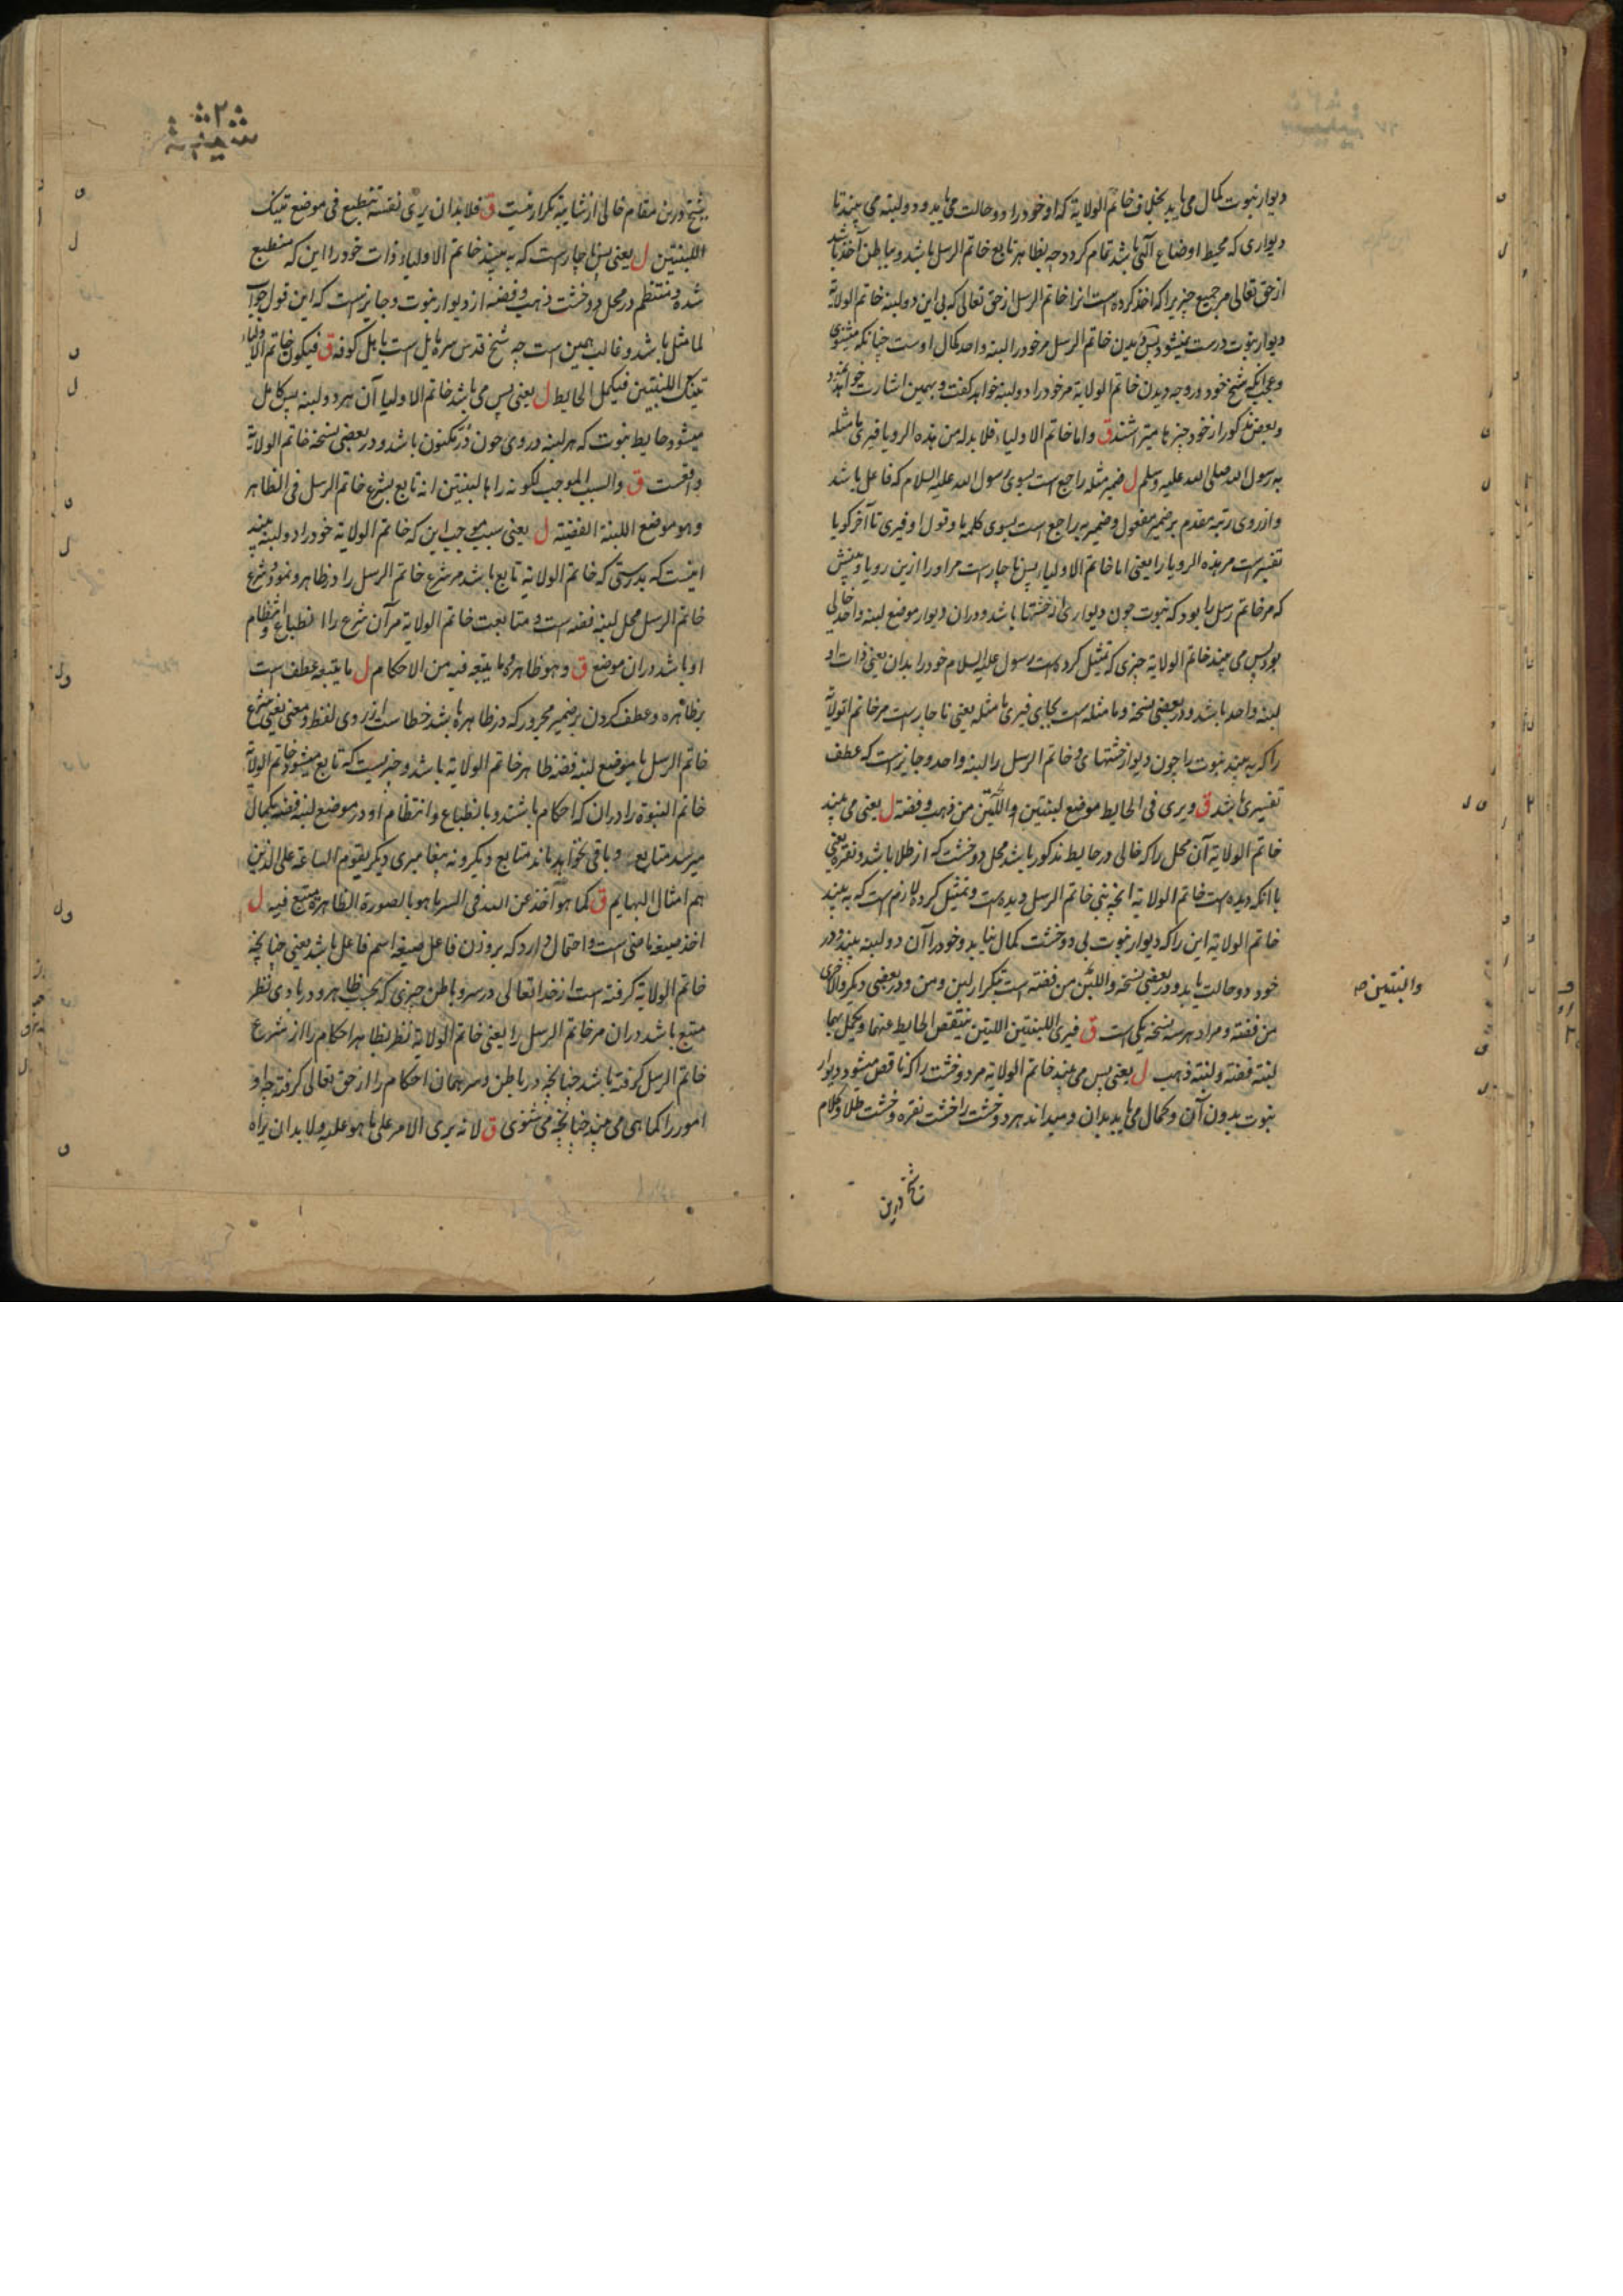 دیوار نبوت کمال می یابد بخلاف خاتم الولایة که او خود را دو حالت می یابد و دو لبنه می بیند تا
دیواری که محیط اوضاع الٓهی باشد تمام کردد چه بظاهر تابع خاتم الرسل باشد و بباطن آخذ باشد
از حق تعالی مر جمیع چیزیرا که اخذ کرده است انرا خاتم الرسل از حق تعالی که بی این دو لبنه خاتم الولایة
دیوار نبوت درست نمیشود پس دیدن خاتم الرسل مر خود را لبنه واحد کمال اوست چنانکه میشنوی
و عجب که شیخ خود در وجه دیدن خاتم الولایة مر خود را دو لبنه خواهد کفت و بهمین اشارت خواهد نمود
و بعض مذکور از خود چیزها میتراشند ق واما خاتم الاولیاء فلا بد له من هذه الرویا فیری ما مثله
به رسول الله صلی الله علیه وسلم ل ضمیر مثله راجع است بسوی رسول الله علیه السلام که فاعل باشد
و از روی رتبه مقدم بر ضمیر مفعول و ضمیر به راجع است بسوی کلمه ما و قول او فیری تا آخر کویا
تفسیر است مر هذه الرویا را یعنی اما خاتم الاولیا پس ناچار است مر او را ازین رویا و بینش
که مر خاتم رسل را بود که نبوت چون دیواری از خشتها باشد و در ان دیوار موضع لبنه واحد خالی
بود پس می بیند خاتم الولایة چیزی که تمثیل کرده است رسول علیه السلام خود را بدان یعنی ذات او
لبنه واحد باشد و در بعضی نسخه و ما مثله است بجای فیری ما مثله یعنی ناچار است مر خاتم الولایة
را که به بیند نبوت را چون دیوار خشتهای و خاتم الرسل را لبنه واحد و جایز است که عطف
تفسیری باشد ق ویری فی الحایط موضع لبنتین واللبن من ذهب وفضة ل یعنی می بیند
خاتم الولایة آن محل را که خالی در حایط مذکور باشد محل دو خشت که از طلا باشد و نقره یعنی
با انکه دیده است خاتم الولایة انچه نبی خاتم الرسل دیده است و تمثیل کرده لازم است که به بیند
خاتم الولایة این را که دیوار نبوت بی دو خشت کمال نیابد و خود را آن دو لبنه بیند و در
خود دو حالت یابد و در بعضی نسخه واللبن من فضة است بتکرار لبن و من و در بعضی دیکر والاخری
والبنتین صه
من فضة و مراد هر سه نسخه یکی است ق فیری اللبنتین اللتین ینتقص الحایط عنهما ویکمل بهما
لبنة فضة ولبنة ذهب ل یعنی پس می بیند خاتم الولایة مر دو خشت را که ناقص میشود دیوار
نبوت بدون آن و کمال می یابد بدان و میداند هر دو خشت را خشت نقره و خشت طلا و کلام
شیخ درین
شیخ درین مقام خالی از شایبه تکرار نیست ق فلا بد ان یری نفسه تنطبع فی موضع تینک
اللبنتین ل یعنی پس ناچار است که به بیند خاتم الاولیاء ذات خود را این که منطبع
شده و منتظم در محل دو خشت ذهب و فضه از دیوار نبوت و جایز است که این قول جواب
لما مثل باشد و غالب همین است چه شیخ قدس سره مایل است باهل کوفه ق فیکون خاتم الاولیاء
تینک اللبنتین فیکمل الحایط ل یعنی پس می باشد خاتم الاولیا آن هر دو لبنه پس کامل
میشود حایط نبوت که هر لبنه در وی چون در مکنون باشد و در بعضی نسخه خاتم الولایة
واقعست ق والسبب الموجب لکونه راها لبنتین انه تابع بشرع خاتم الرسل فی الظاهر
وهو موضع اللبنة الفضیة ل یعنی سبب موجب این که خاتم الولایة خود را دو لبنه بیند
اینست که بدرستی که خاتم الولایة تابع باشد مر شرع خاتم الرسل را در ظاهر و نمود شرع
خاتم الرسل محل لبنه فضه است و متابعت خاتم الولایة مر آن شرع را انطباع و انتظام
او باشد در ان موضع ق وهو ظاهره وما یتبعه فیه من الاحکام ل ما یتبعه عطف است
بر ظاهره و عطف کردن بر ضمیر مجرور که در ظاهره باشد خطاست از روی لفظ و معنی یعنی شرع
خاتم الرسل یا موضع لبنه فضه ظاهر خاتم الولایة باشد و چیزیست که تابع میشود خاتم الولایة
خاتم النبوة را در ان که احکام باشند و بانطباع و انتظام او در موضع لبنه فضه بکمال
میرسد متابع و باقی نخواهد ماند متابع دیکر و نه پیغامبری دیکر یقوم الساعة علی الذین
هم امثال البهایم ق کما هو آخذ عن الله فی السر ما هو بالصورة الظاهرة متبع فیه ل
اخذ صیغه ماضی است و احتمال دارد که بر وزن فاعل صیغه اسم فاعل باشد یعنی چنانچه
خاتم الولایة کرفته است از خدا تعالی در سر و باطن چیزی که بحسب ظاهر و در بادی نظر
متبع باشد در ان مر خاتم الرسل را یعنی خاتم الولایة نظر بظاهر احکام را از مشروع
خاتم الرسل کرفته باشد چنانچه در باطن و سر همان احکام را از حق تعالی کرفته چه او
امور را کما هی می بیند چنانچه می شنوی ق لانه یری الامر علی ما هو علیه ولا بد ان یراه